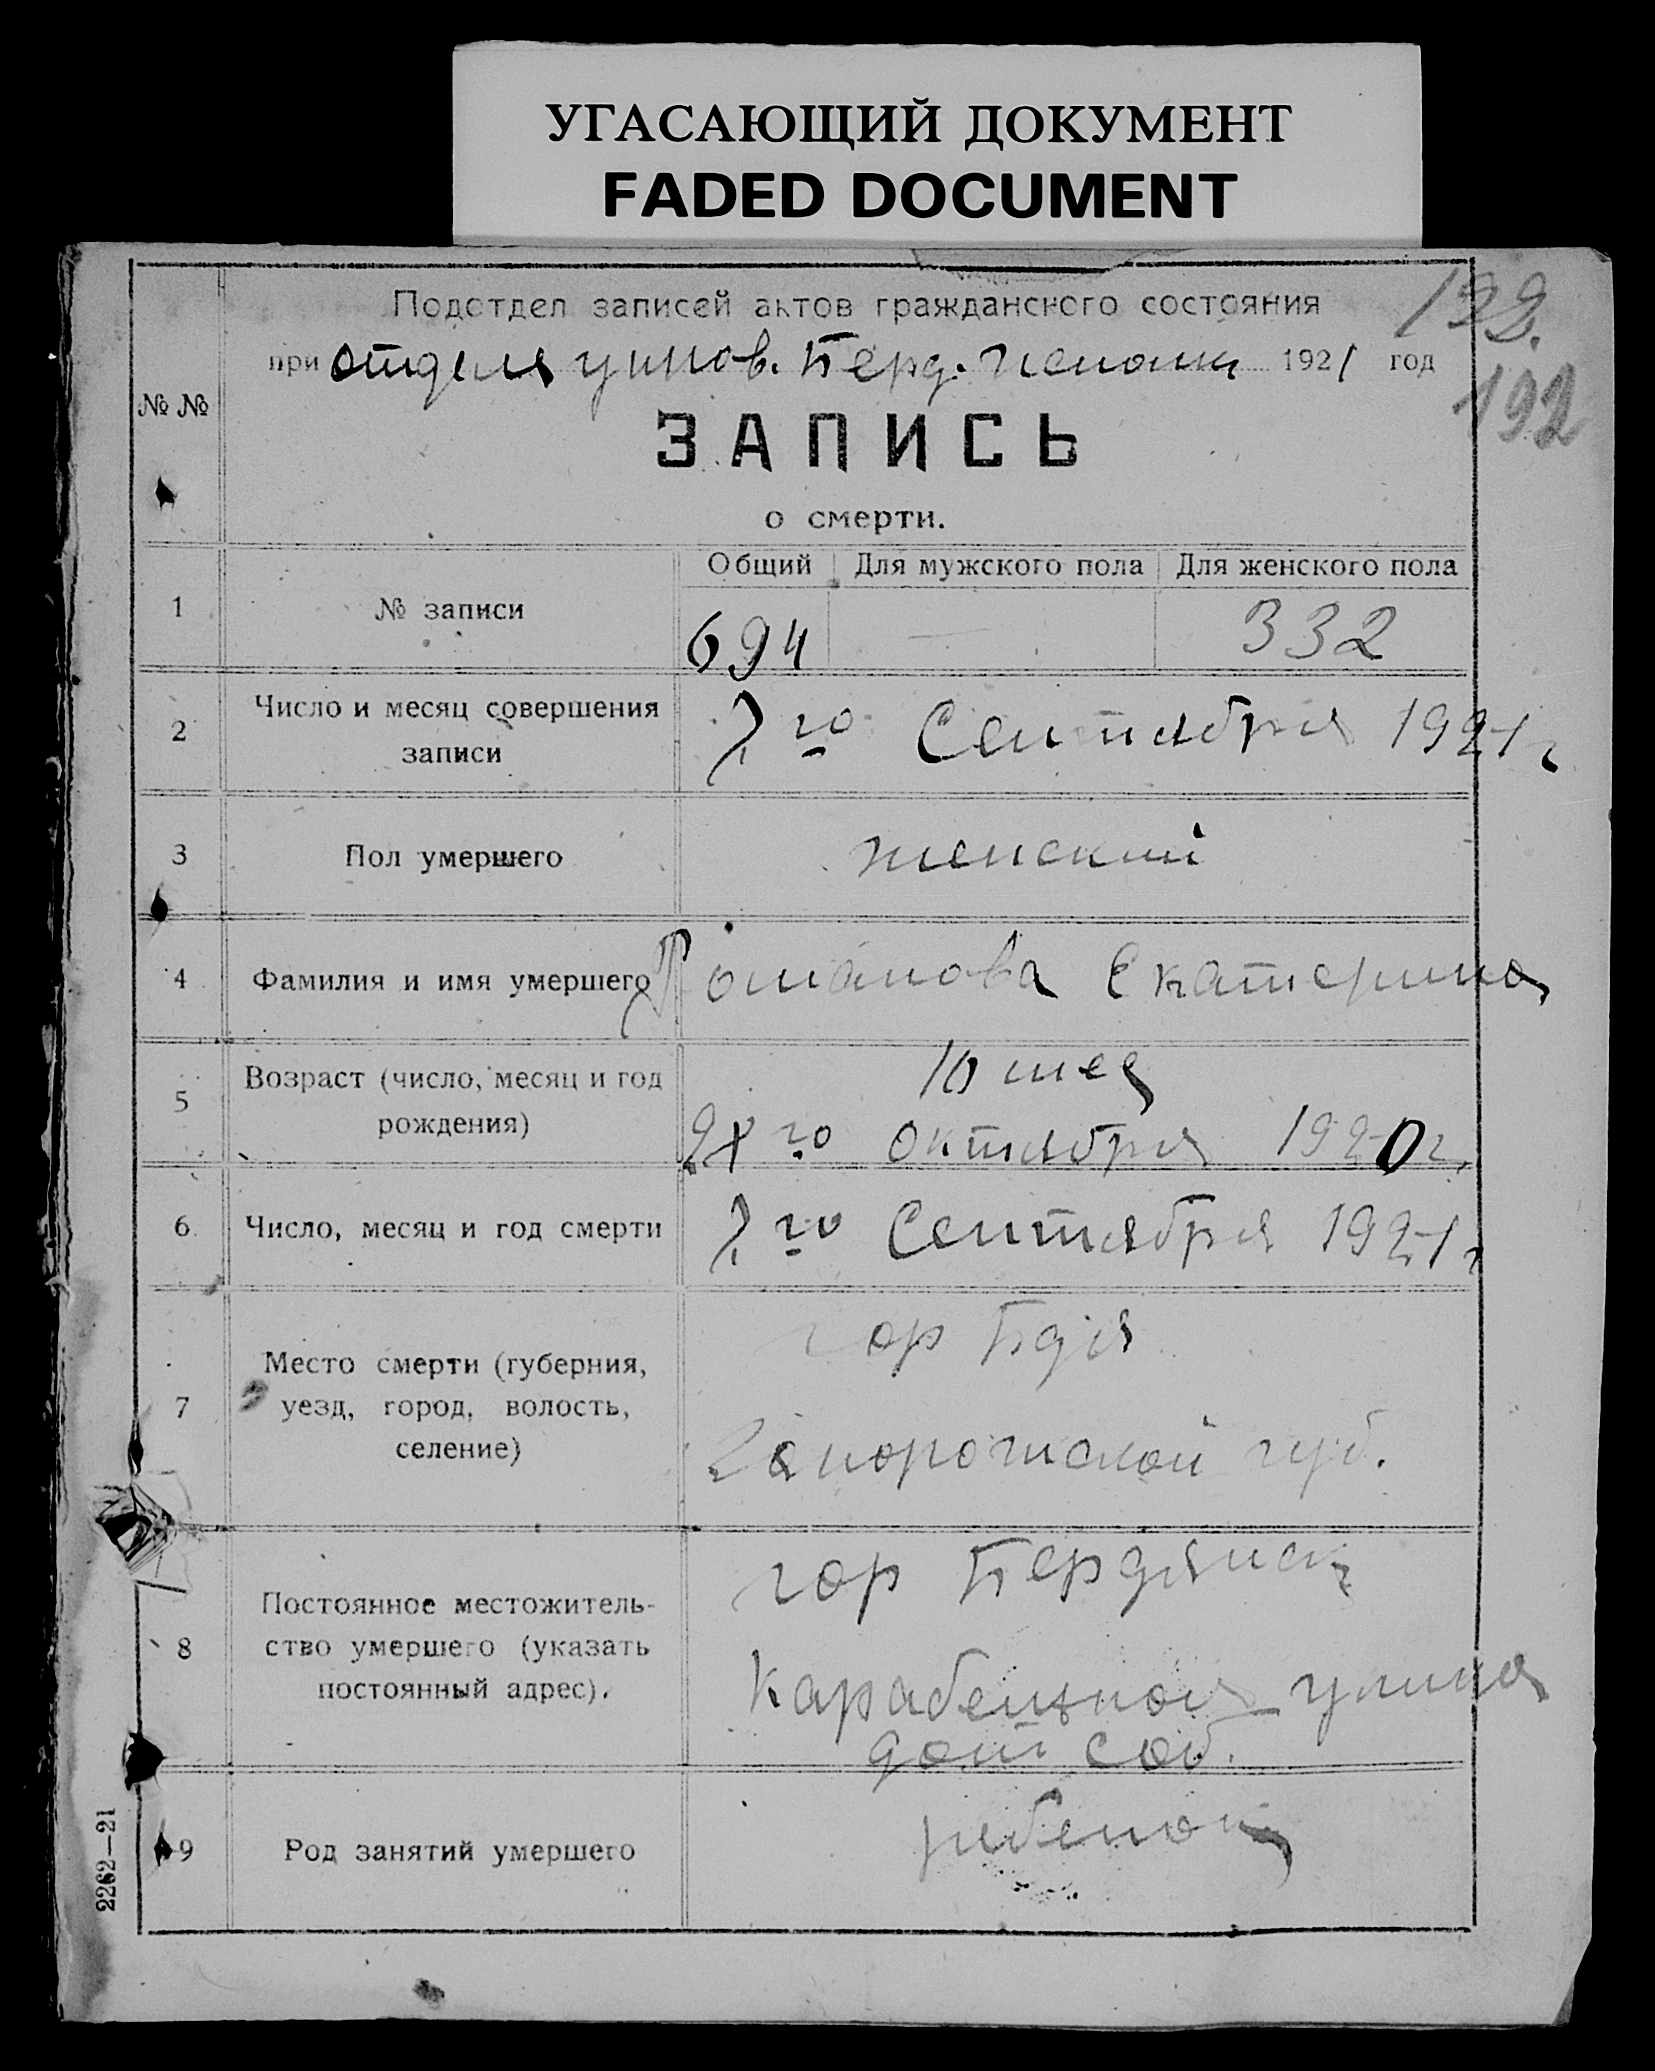 УГАСАЮЩИЙ ДОКУМЕНТ
FADED DOCUMENT
Подотдел записей актов гражданского состояния
при отделе управ. Берд. Исполк 1921 год
192
192
№ №
ЗАПИСЬ
о смерти.
Общий Для мужского пола Для женского пола
1 № записи 694 — 332
2 Число и месяц совершения
записи
7го Сентября 1921 г
3 Пол умершего женский
4 Фамилия и имя умершего Романова Екатерина
5 Возраст (число, месяц и год
рождения)
10 мес
го октября 1920 г.
6 Число, месяц и год смерти 7го Сентября 1921 г
7 Место смерти (губерния,
уезд, город, волость,
селение)
гор
Запорожской губ.
8 Постоянное местожитель-
ство умершего (указать
постоянный адрес).
гор Бердянск
улица
дом соб.
9 Род занятий умершего ребенок
2262—21